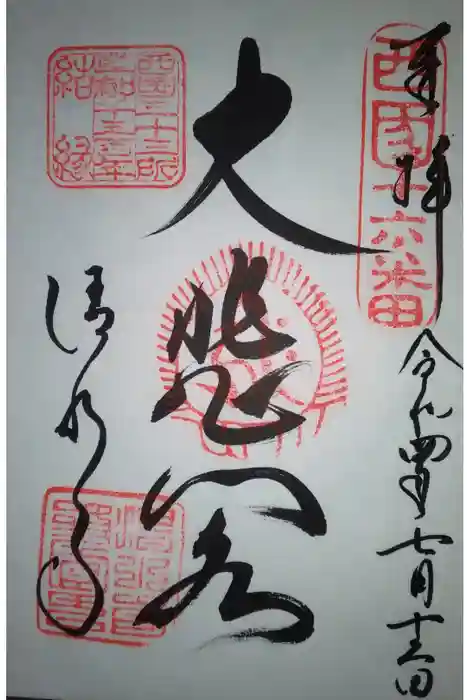 奉拝
西国十六番
令和四年七月
大悲閣
西国三十三所
草創千三百年
結縁
清水寺